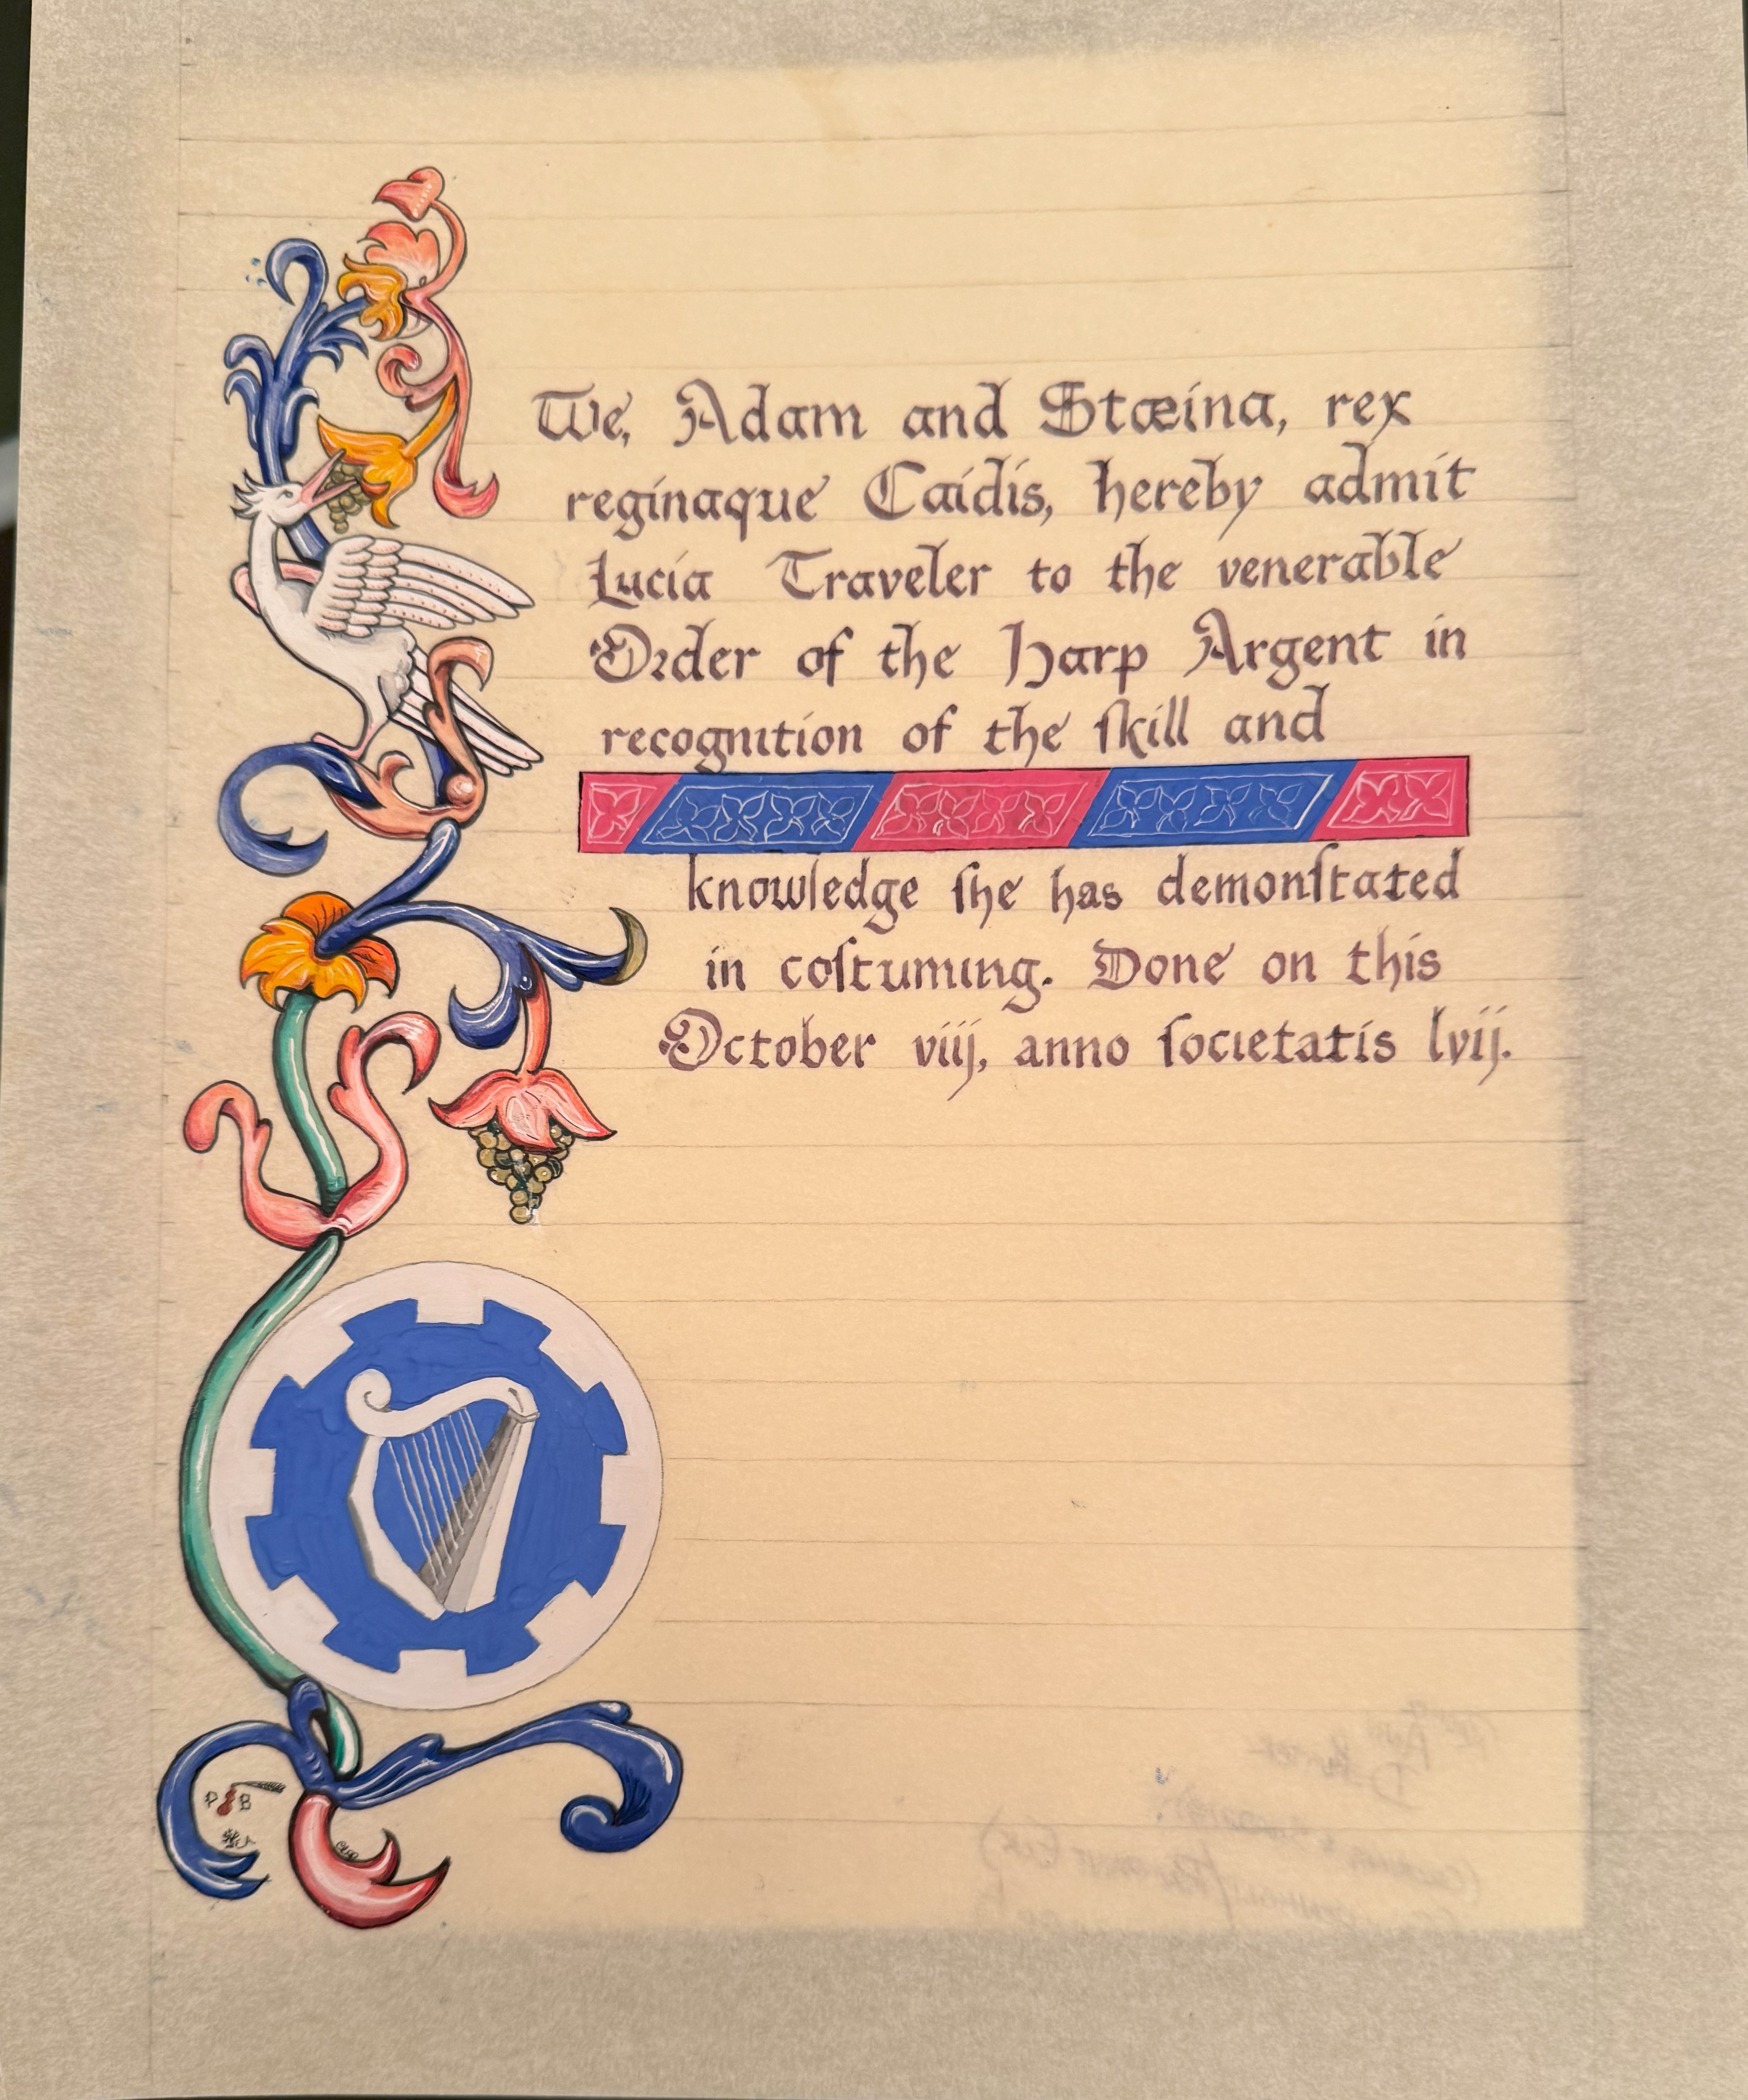 We, Adam and Stæina, rex
reginaque Caidis, hereby admit
Lucia Traveler to the venerable
Order of the Harp Argent in
recognition of the ſkill and
knowledge ſhe has demonſtated
in coſtuming. Done on this
October viij, anno ſocietatis lvij.
P B